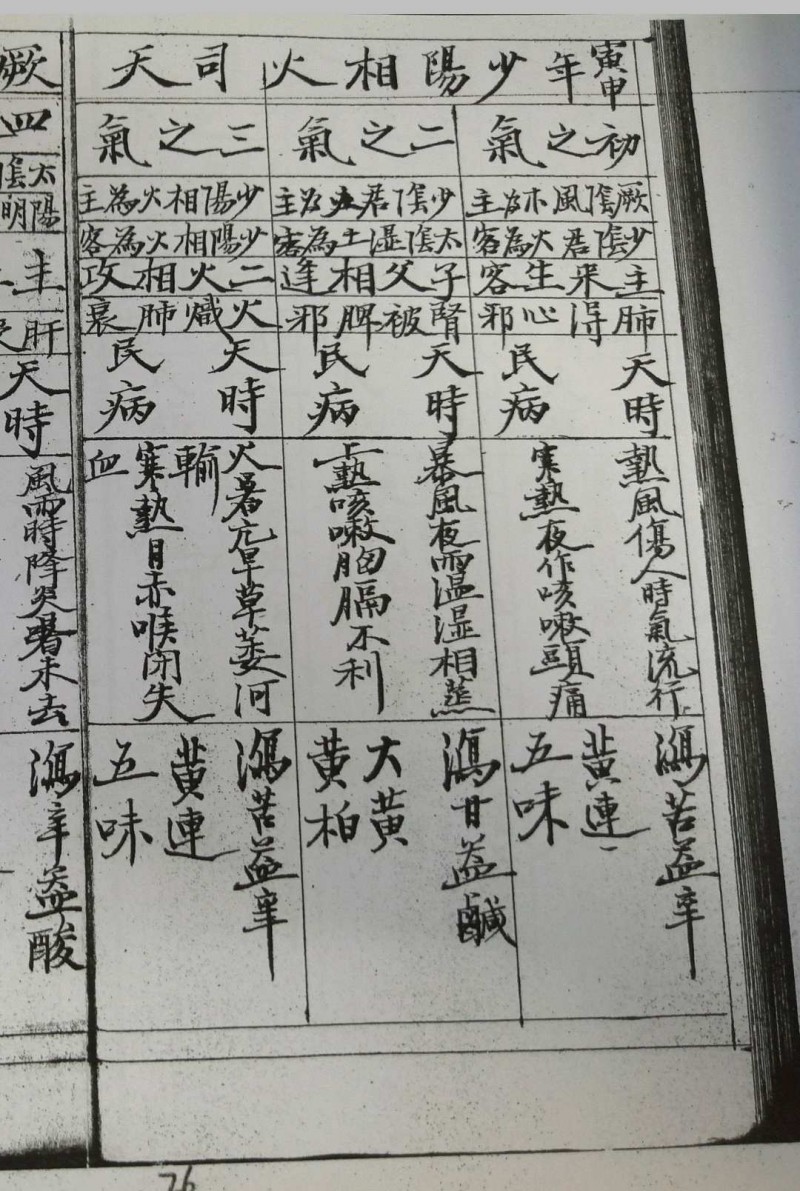 寅申年少陽相火司天
初之氣
厥陰風木為主
少陰君火為客
主來生客
肺得心邪
天時
民病
熱風傷人時氣流行
寒熱夜作咳嗽頭痛
瀉苦益辛
黃連
五味
二之氣
少陰君火為主
太陰湿土為客
子父相逢
腎被脾邪
天時
民病
暴風夜雨温湿相蒸
上熱咳嗽胸膈不利
瀉甘益鹹
大黃
黃柏
三之氣
少陽相火為主
少陽相火為客
二火相攻
火熾肺衰
天時
民病
火暑亢旱草萎河
輸
寒熱目赤喉閉失
血
瀉苦益辛
黃連
五味
厥
四
太陰
陽明
主
肝
天時
風雨時降炎暑未去
瀉辛益酸
76